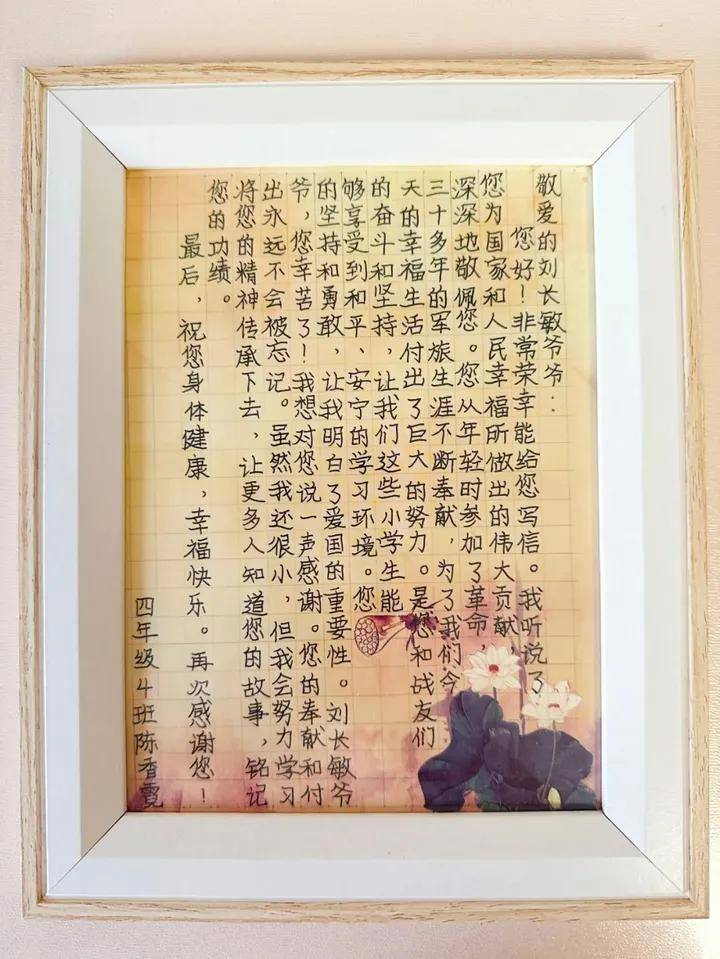 敬爱的刘长敏爷爷：
您好！非常荣幸能给您写信。我听说了
您为国家和人民幸福所做出的伟大贡献，
深深地敬佩您。您从年轻时参加了革命，
三十多年的军旅生涯不断奉献，为了我们今
天的幸福生活付出了巨大的努力。是您和战友们
的奋斗和坚持，让我们这些小学生能
够享受到和平、安宁的学习环境。您
的坚持和勇敢，让我明白了爱国的重要性。刘长敏爷
爷，您幸苦了！我想对您说一声感谢。您的奉献和付
出永远不会被忘记。虽然我还很小，但我会努力学习
将您的精神传承下去，让更多人知道您的故事，铭记
您的功绩。
最后，祝您身体健康，幸福快乐。再次感谢您！
四年级4班陈香霓